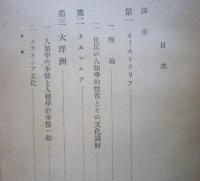 目次
譯序
第一 オーストラリア
一、概論
二、住民の人類學的性質とその文化諸財
第二 タスマニア
第三 大洋洲
一、人類學的事情と人種學的事情一般
二、メラネシア文化